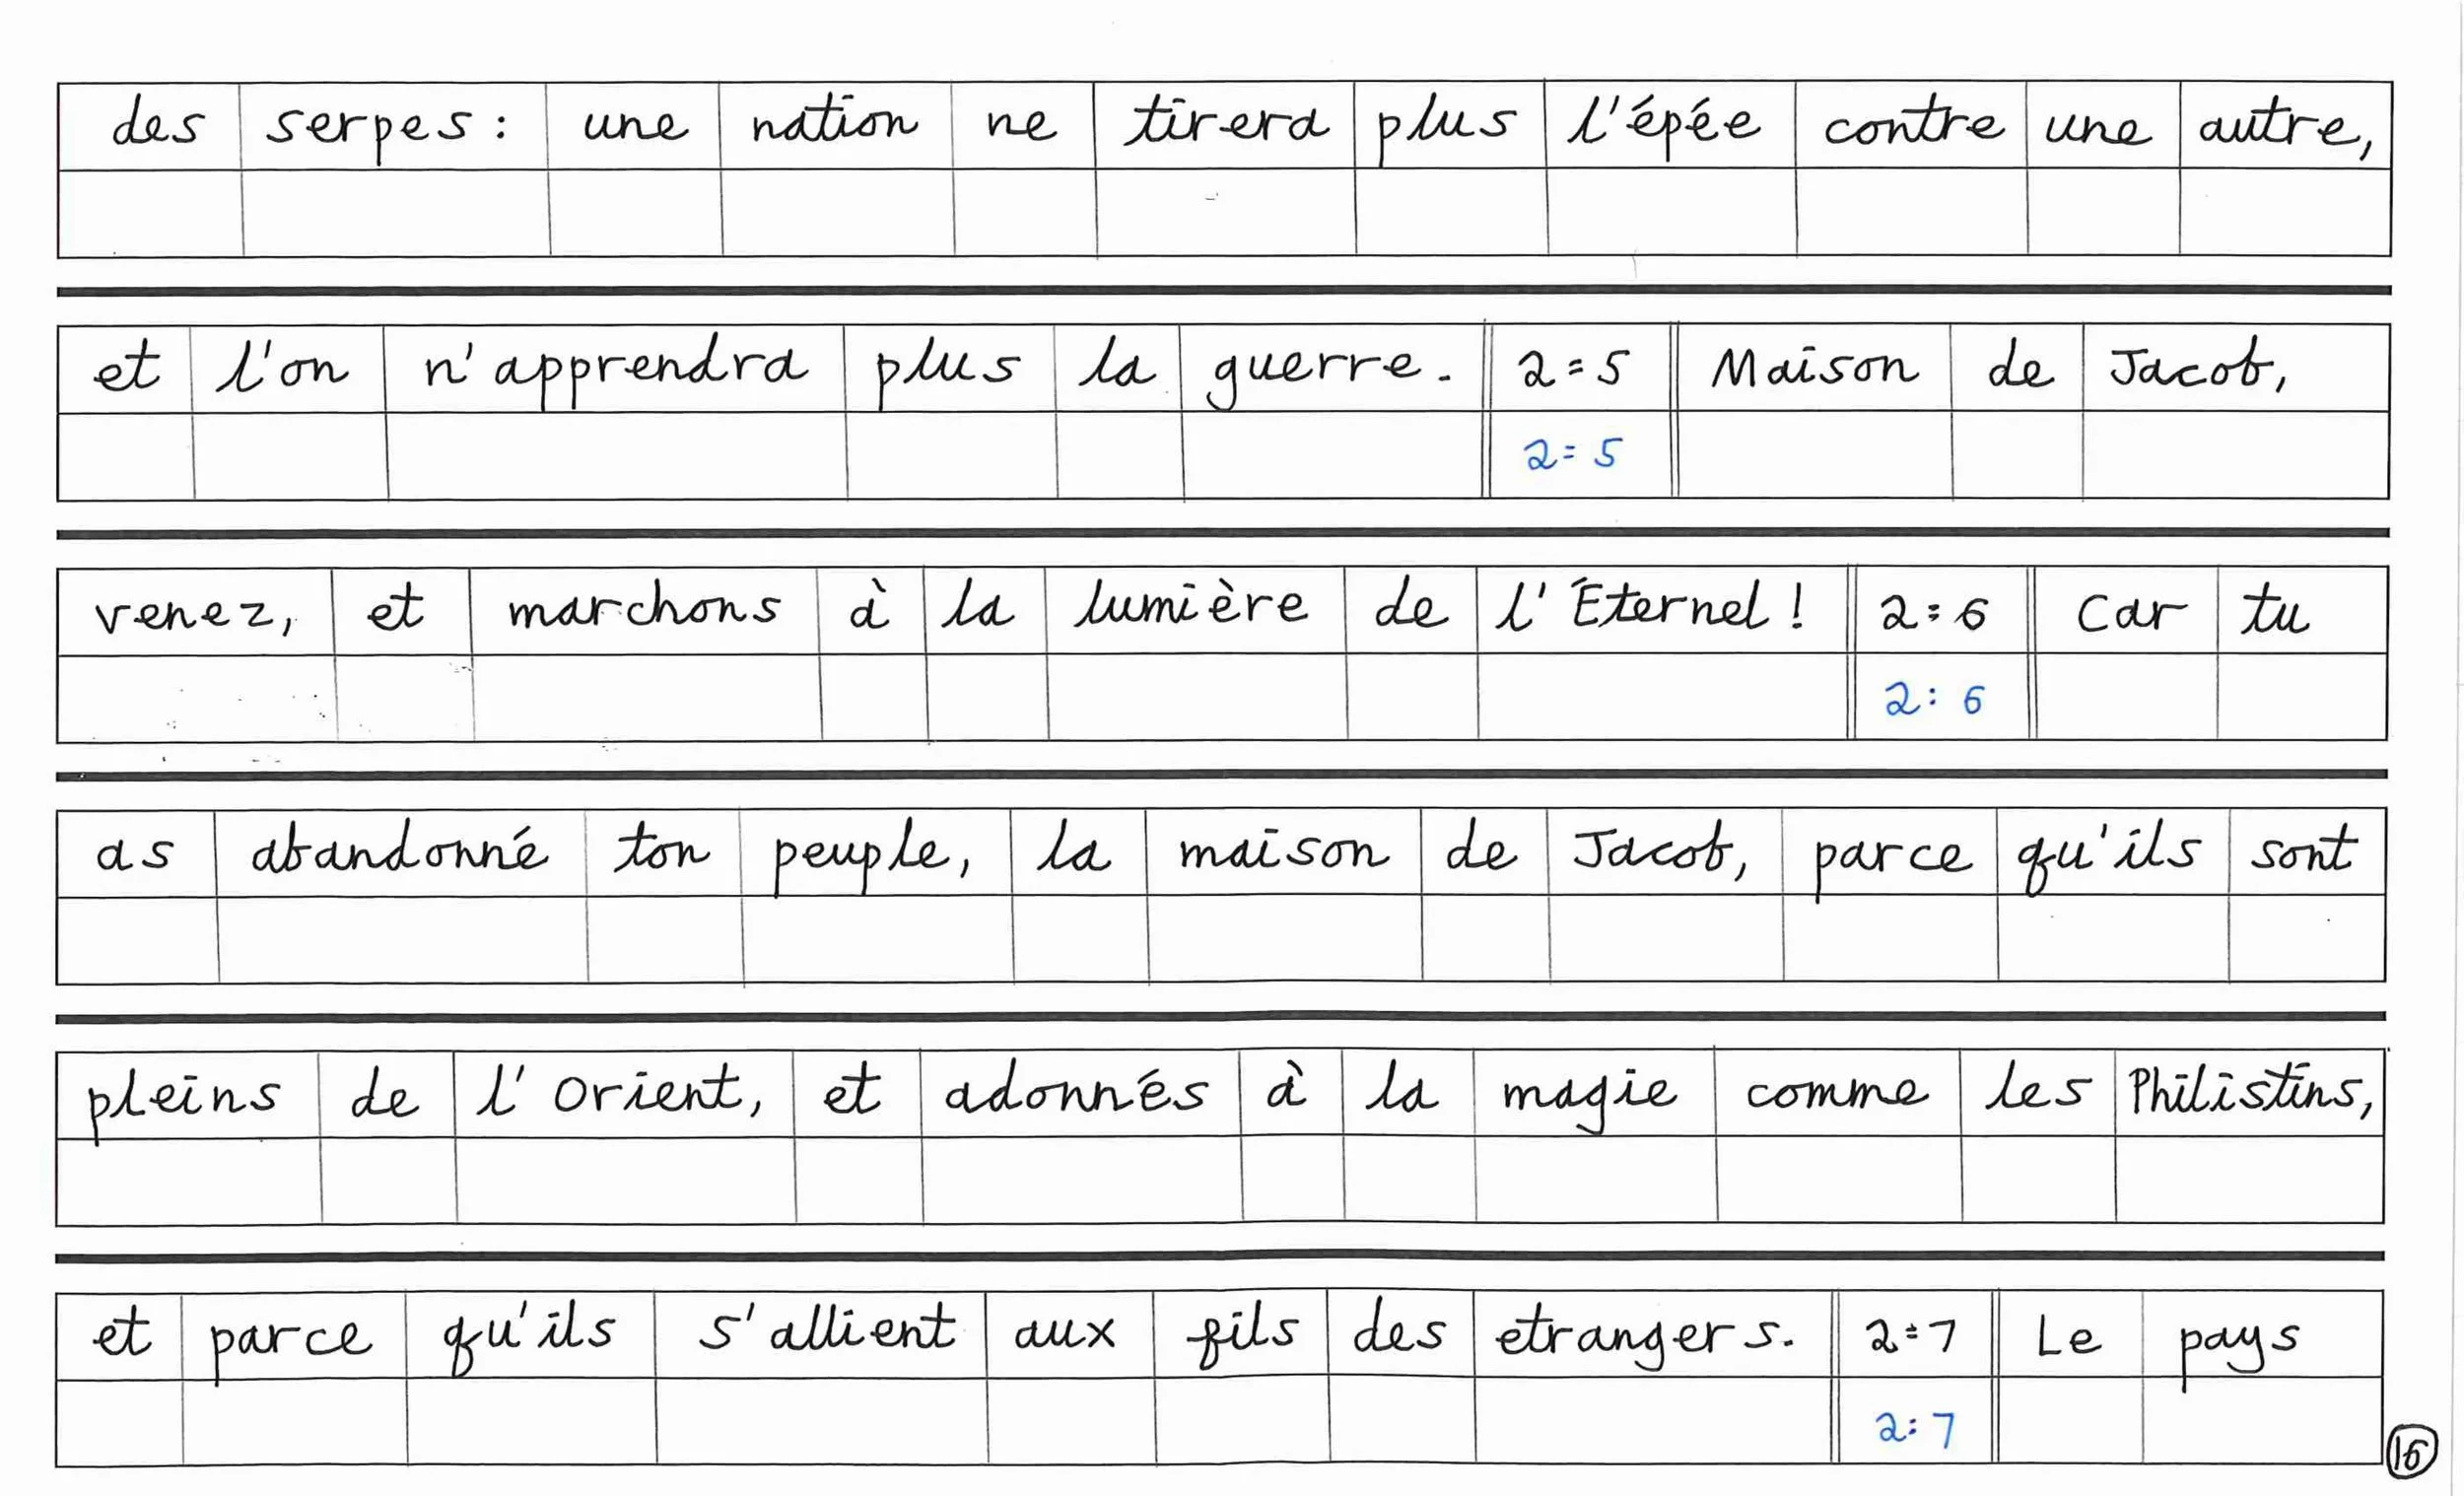 des serpes: une nation ne tirera plus l'épée contre une autre,
et l'on n'apprendra plus la guerre. 2:5 Maison de Jacob,
2:5
venez, et marchons à la lumière de l'Éternel! 2:6 Car tu
2:6
as abandonné ton peuple, la maison de Jacob, parce qu'ils sont
pleins de l'Orient, et adonnés à la magie comme les Philistins,
et parce qu'ils s'allient aux fils des etrangers. 2:7 Le pays
2:7
16